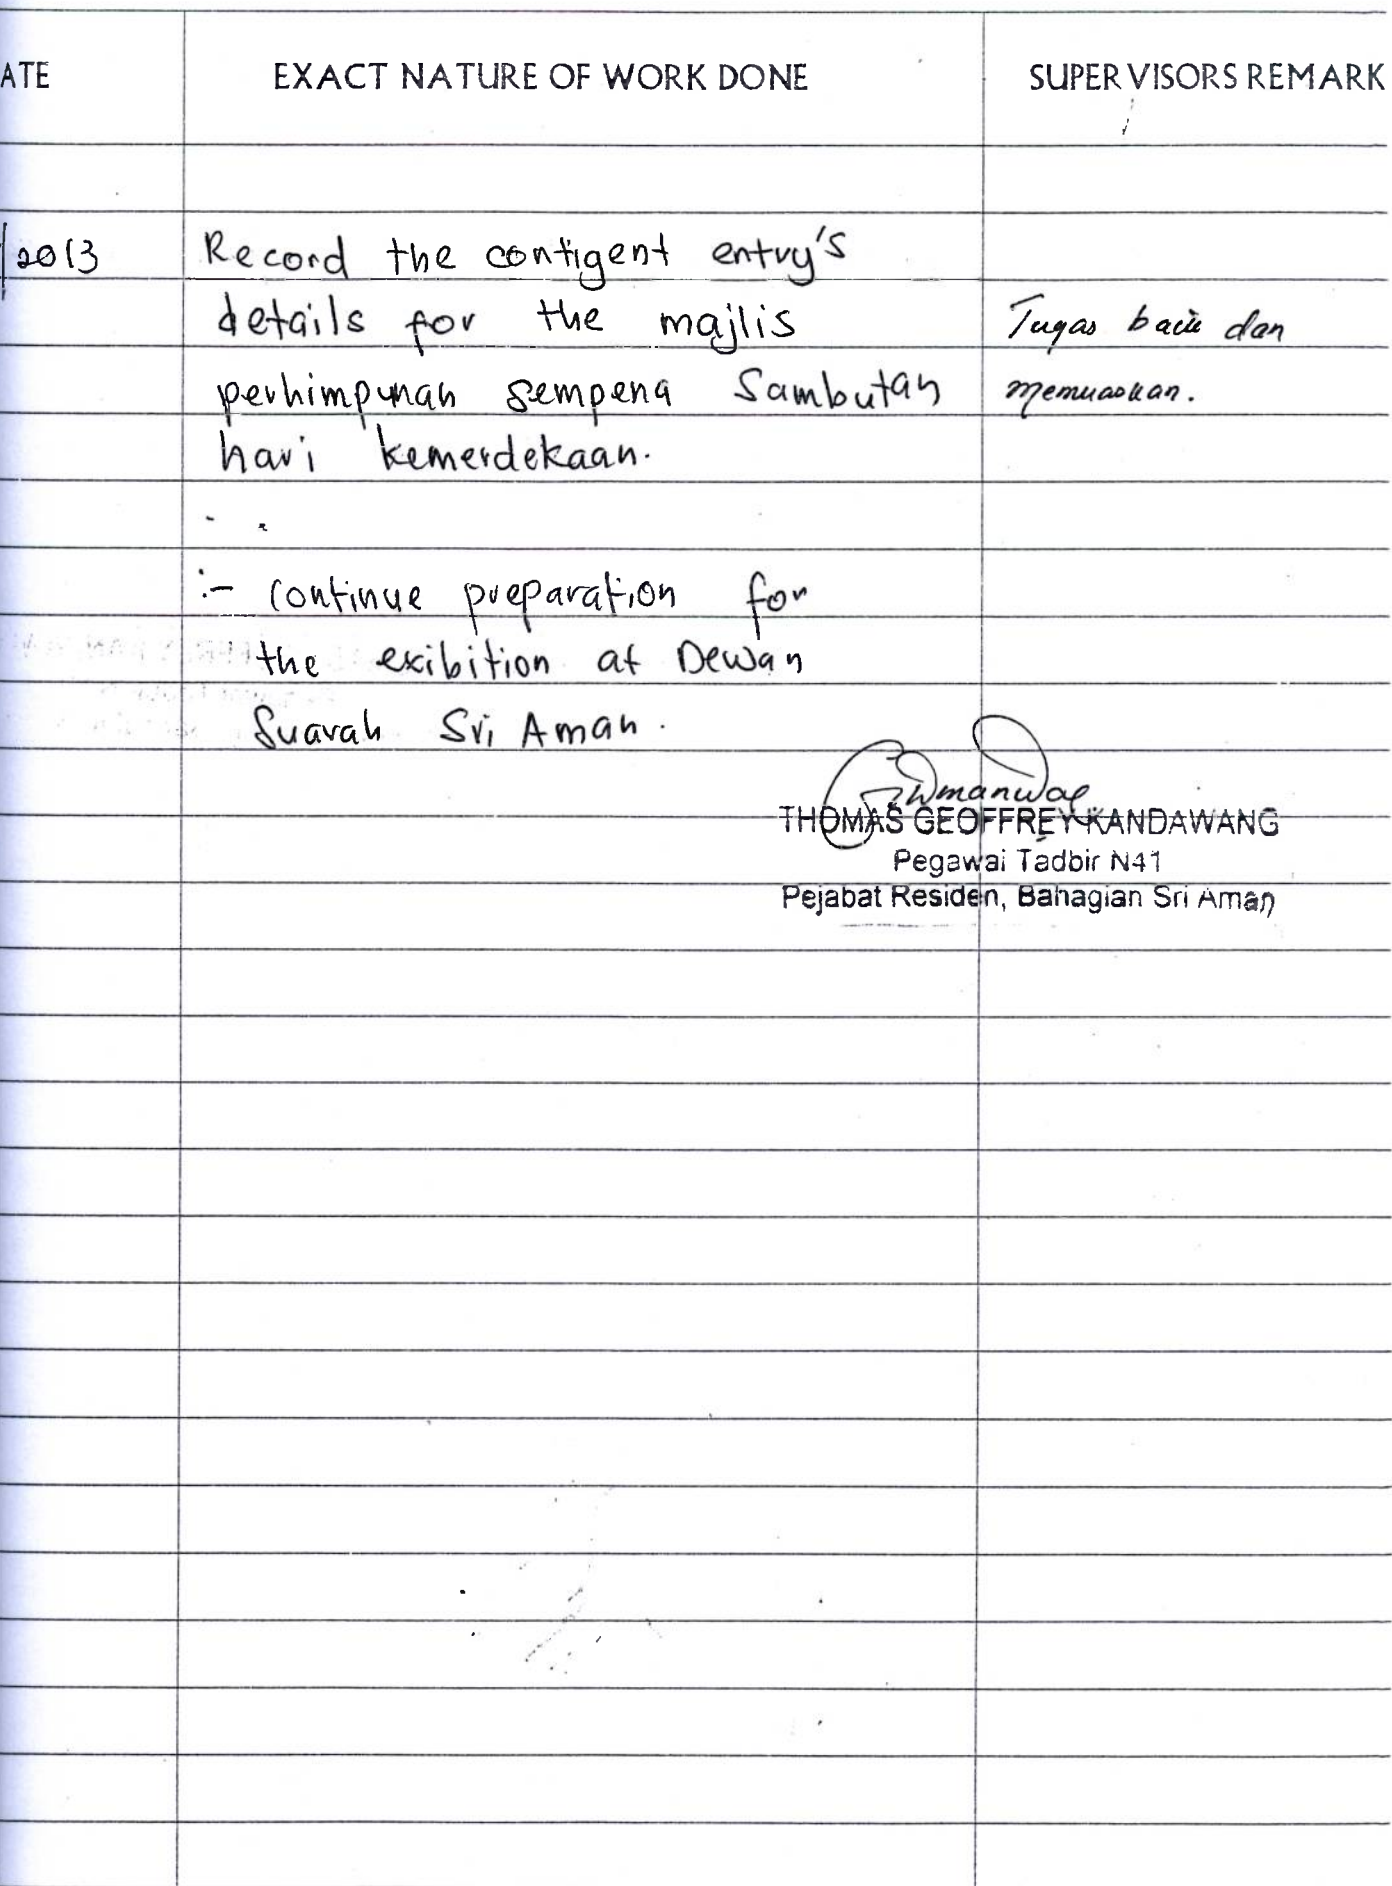 ATE EXACT NATURE OF WORK DONE SUPERVISORS REMARK
/2013 Record the contigent entry's
details for the majlis Tugas baik dan
perhimpunan sempena Sambutan memuaskan.
hari kemerdekaan.
:- Continue preparation for
the exibition at Dewan
Suarah Sri Aman.
THOMAS GEOFFREY KANDAWANG
Pegawai Tadbir N41
Pejabat Residen, Bahagian Sri Aman